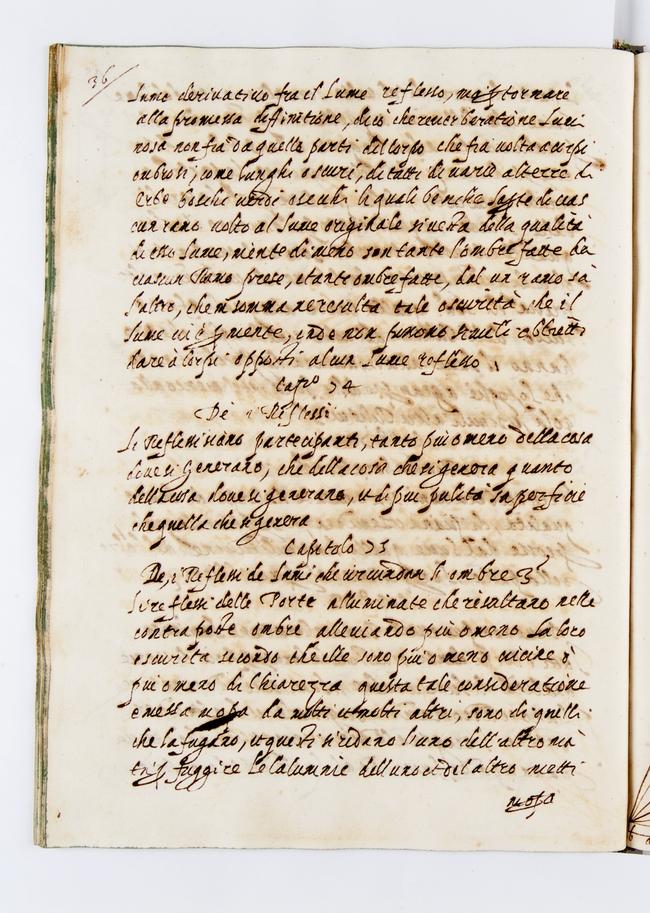 36
lume derivativo fra el lume reflesso, ma p tornare
alla promessa diffinitione, dico che reverberatione Lumi
nosa non fia da quelle parti del corpo che fia volta a corpi
ombrosi, come lunghi oscuri, di tetti di varie alterre di
erbe boschi verdi o secchi li quali benche la parte di cias
cun ramo volto al lume originale si vesta della qualità
di esso lume, niente di meno son tante l'ombre fatte da
ciascun Ramo prese, e tante ombre fatte, dal un ramo sà
l'altro, che in somma ne resulta tale oscurità che il
lume vi è p niente, onde non possono simili obbietti
dare à corpi opposti alcun lume reflesso
Capº 74
De i Reflessi
Li Reflessi siano partecipanti, tanto più o meno della cosa
dove si generano, che della cosa che si genera quanto
della cosa dove si generano, è di più pulita superficie
che quella che si genera
Capitolo 75
De, i Reflessi de Lumi che circundan l'ombre
Li reflessi delle Parte alluminate che resultano nelle
contraposte ombre alleviando più o meno la loro
oscurità secondo che elle sono più o meno vicine ò
più o meno di Chiarezza questa tale consideratione
e messa in opa da molti et molti altri, sono di quelli
che la fugano, et questi si ridano l'uno dell'altro mà
tu p fuggire le Calumnie dell uno et del altro metti
in opa